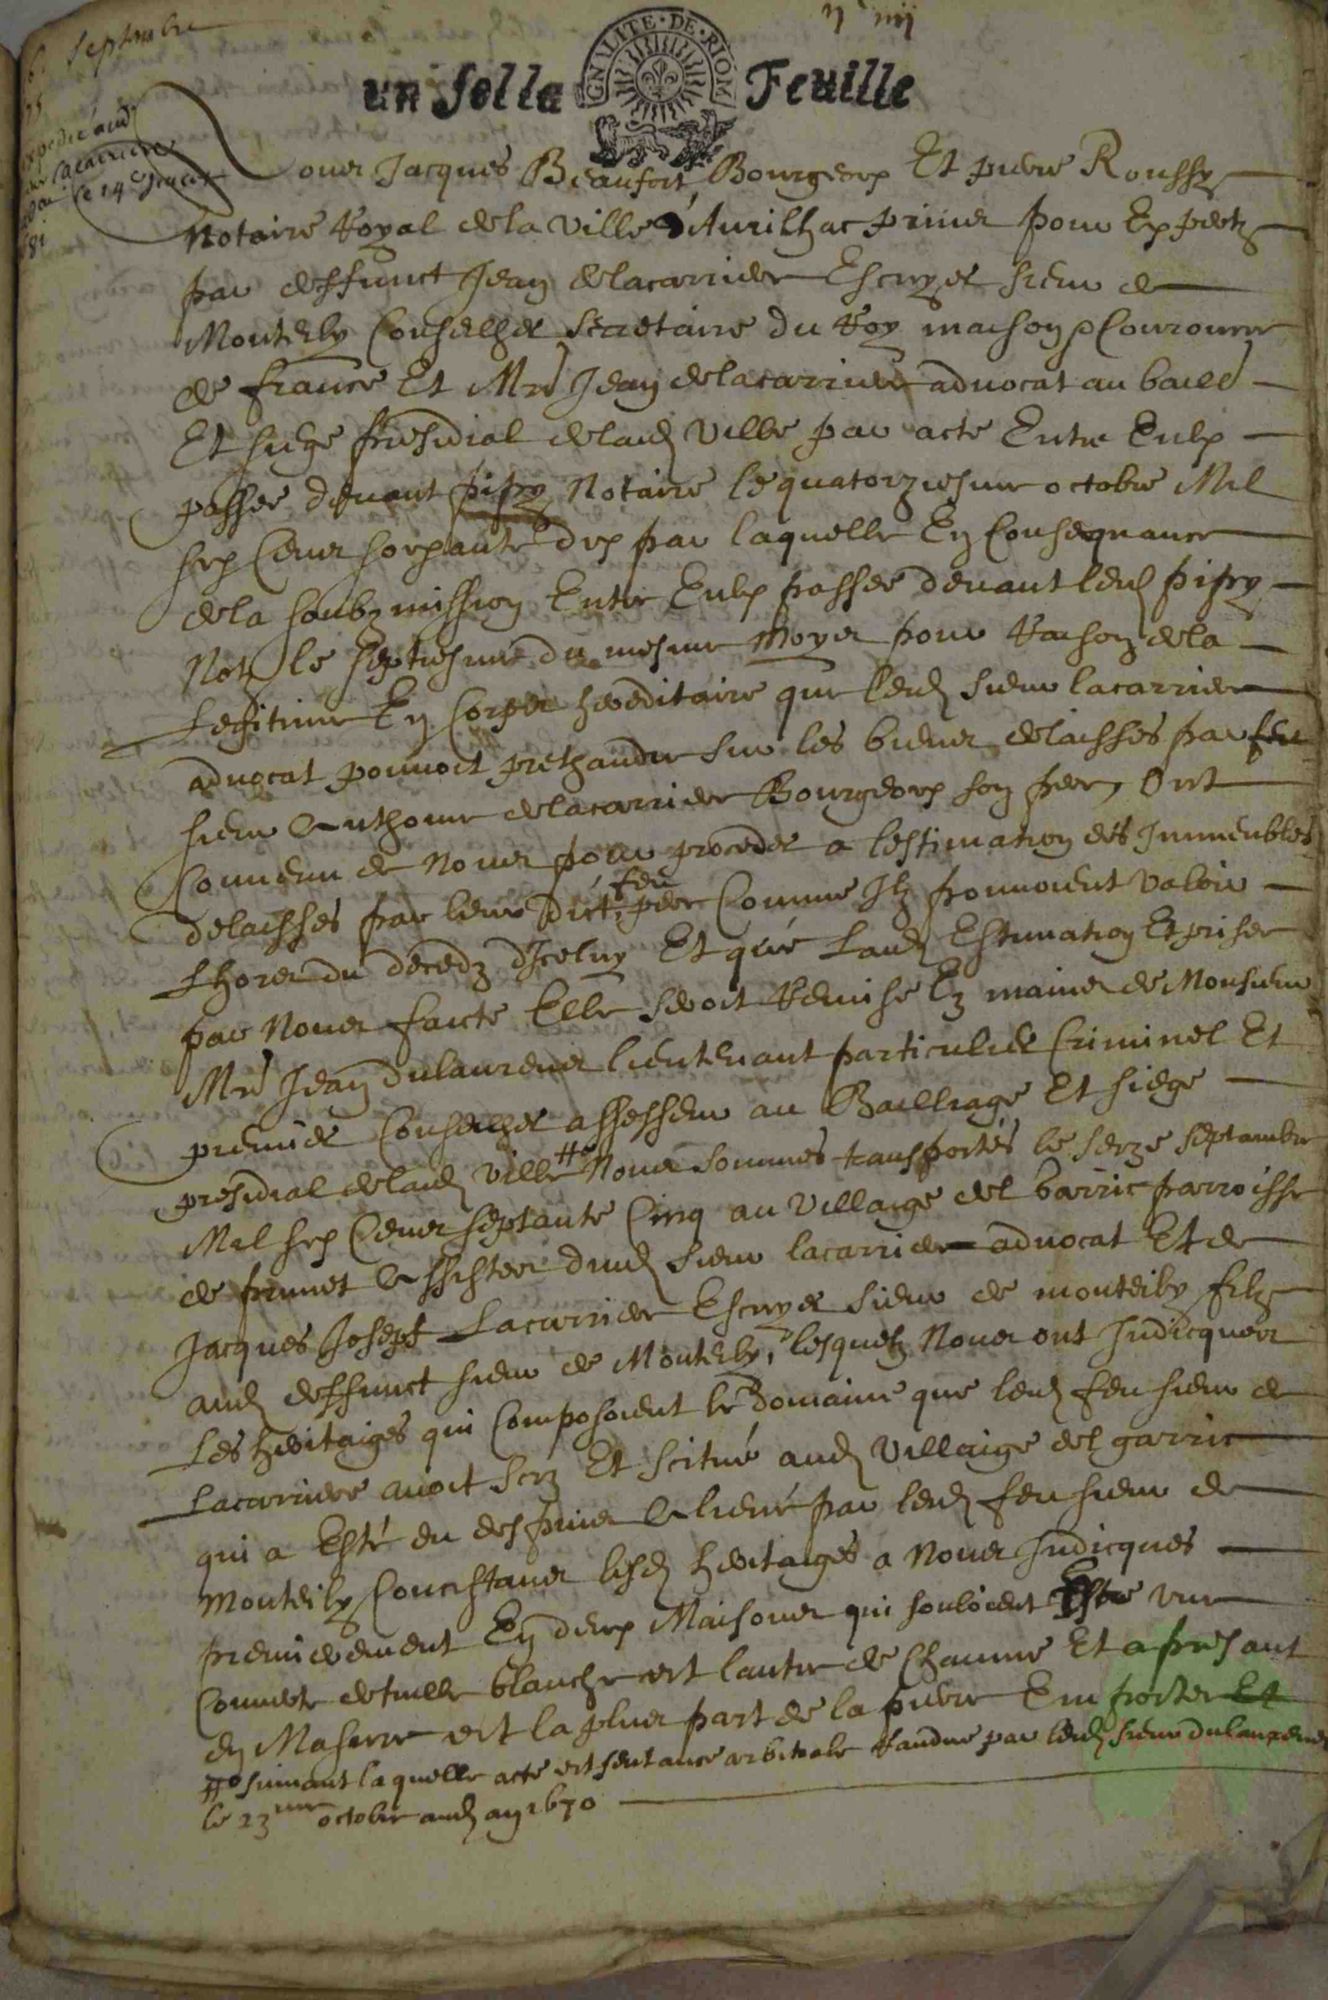 6 septembre
75
expedié aud
sr Lacarriere
le 14e
681
un sol la Feuille
GNALITE DE RIOM
Nous Jacques Beaufort Bourgeois Et pierre Roussy
Notaire Royal de la ville d'Aurilhac prins pour Expertz
par deffunct Jean delacarriere Escuyer sieur de
Monteily Conseilher secretaire du Roy maison & Couronne
de france Et Mre Jean delacarriere advocat au bailé
Et siege presidial delad ville par acte Entre Eulx
passée devant pipy Notaire le quatorziesme octobre Mil
six Cens soixante dix par laquelle En Consequance
de la soubzmission Entre Eulx passée devant led pipy
Notre le septiesme du mesme moyes pour Raison de la
Legitime En Corps hereditaire que led sieur lacarriere
advocat pouvoit prethandre sur les biens delaisses par feu
sieur Anthoine delacarriere Bourgeois son pere, Ont
Convenu de Nous pour proceder a lestimation des Immeubles
delaisses par leur dict feu pere Comme Ilz pouvoient valoir
Lhors du decedz d'Iceluy Et que Lad Estimation Et prisee
par Nous faicte Elle seroit Remise Ez mains de Monsieur
Mre Jean dulaurens lieutenant particulier Criminel Et
premier Conseilher assesseur au Bailliage Et siege
presidial delad ville # Nous sommes transportés le seize septambre
Mil six Cens septante Cinq au Villaige del barric parroisse
de prunet Assistes dud sieur lacarriere advocat Et de
Jacques Joseph Lacarriere Escuyer sieur de monteily filz
aud deffunct sieur de Monteily, lesquelz Nous ont Indicques
Les heritaiges qui Composoient le domaine que led feu sieur de
Lacarriere avoit scis Et scitué aud Villaige del garric
qui a Esté du despuis Aliené par led feu sieur de
Monteily Concistans lesd heritaiges a Nous Indicques
premierement En deux Maisons qui souloient Estre une
Couverte de tuille blanche et lautre de Chaume Et apresant
En Masure et la plus part de la pierre Emportee Et
# suivant laquelle acte et sentance arbitrale Randue par led sieur dulaurens
le 23me octobre aud an 1670